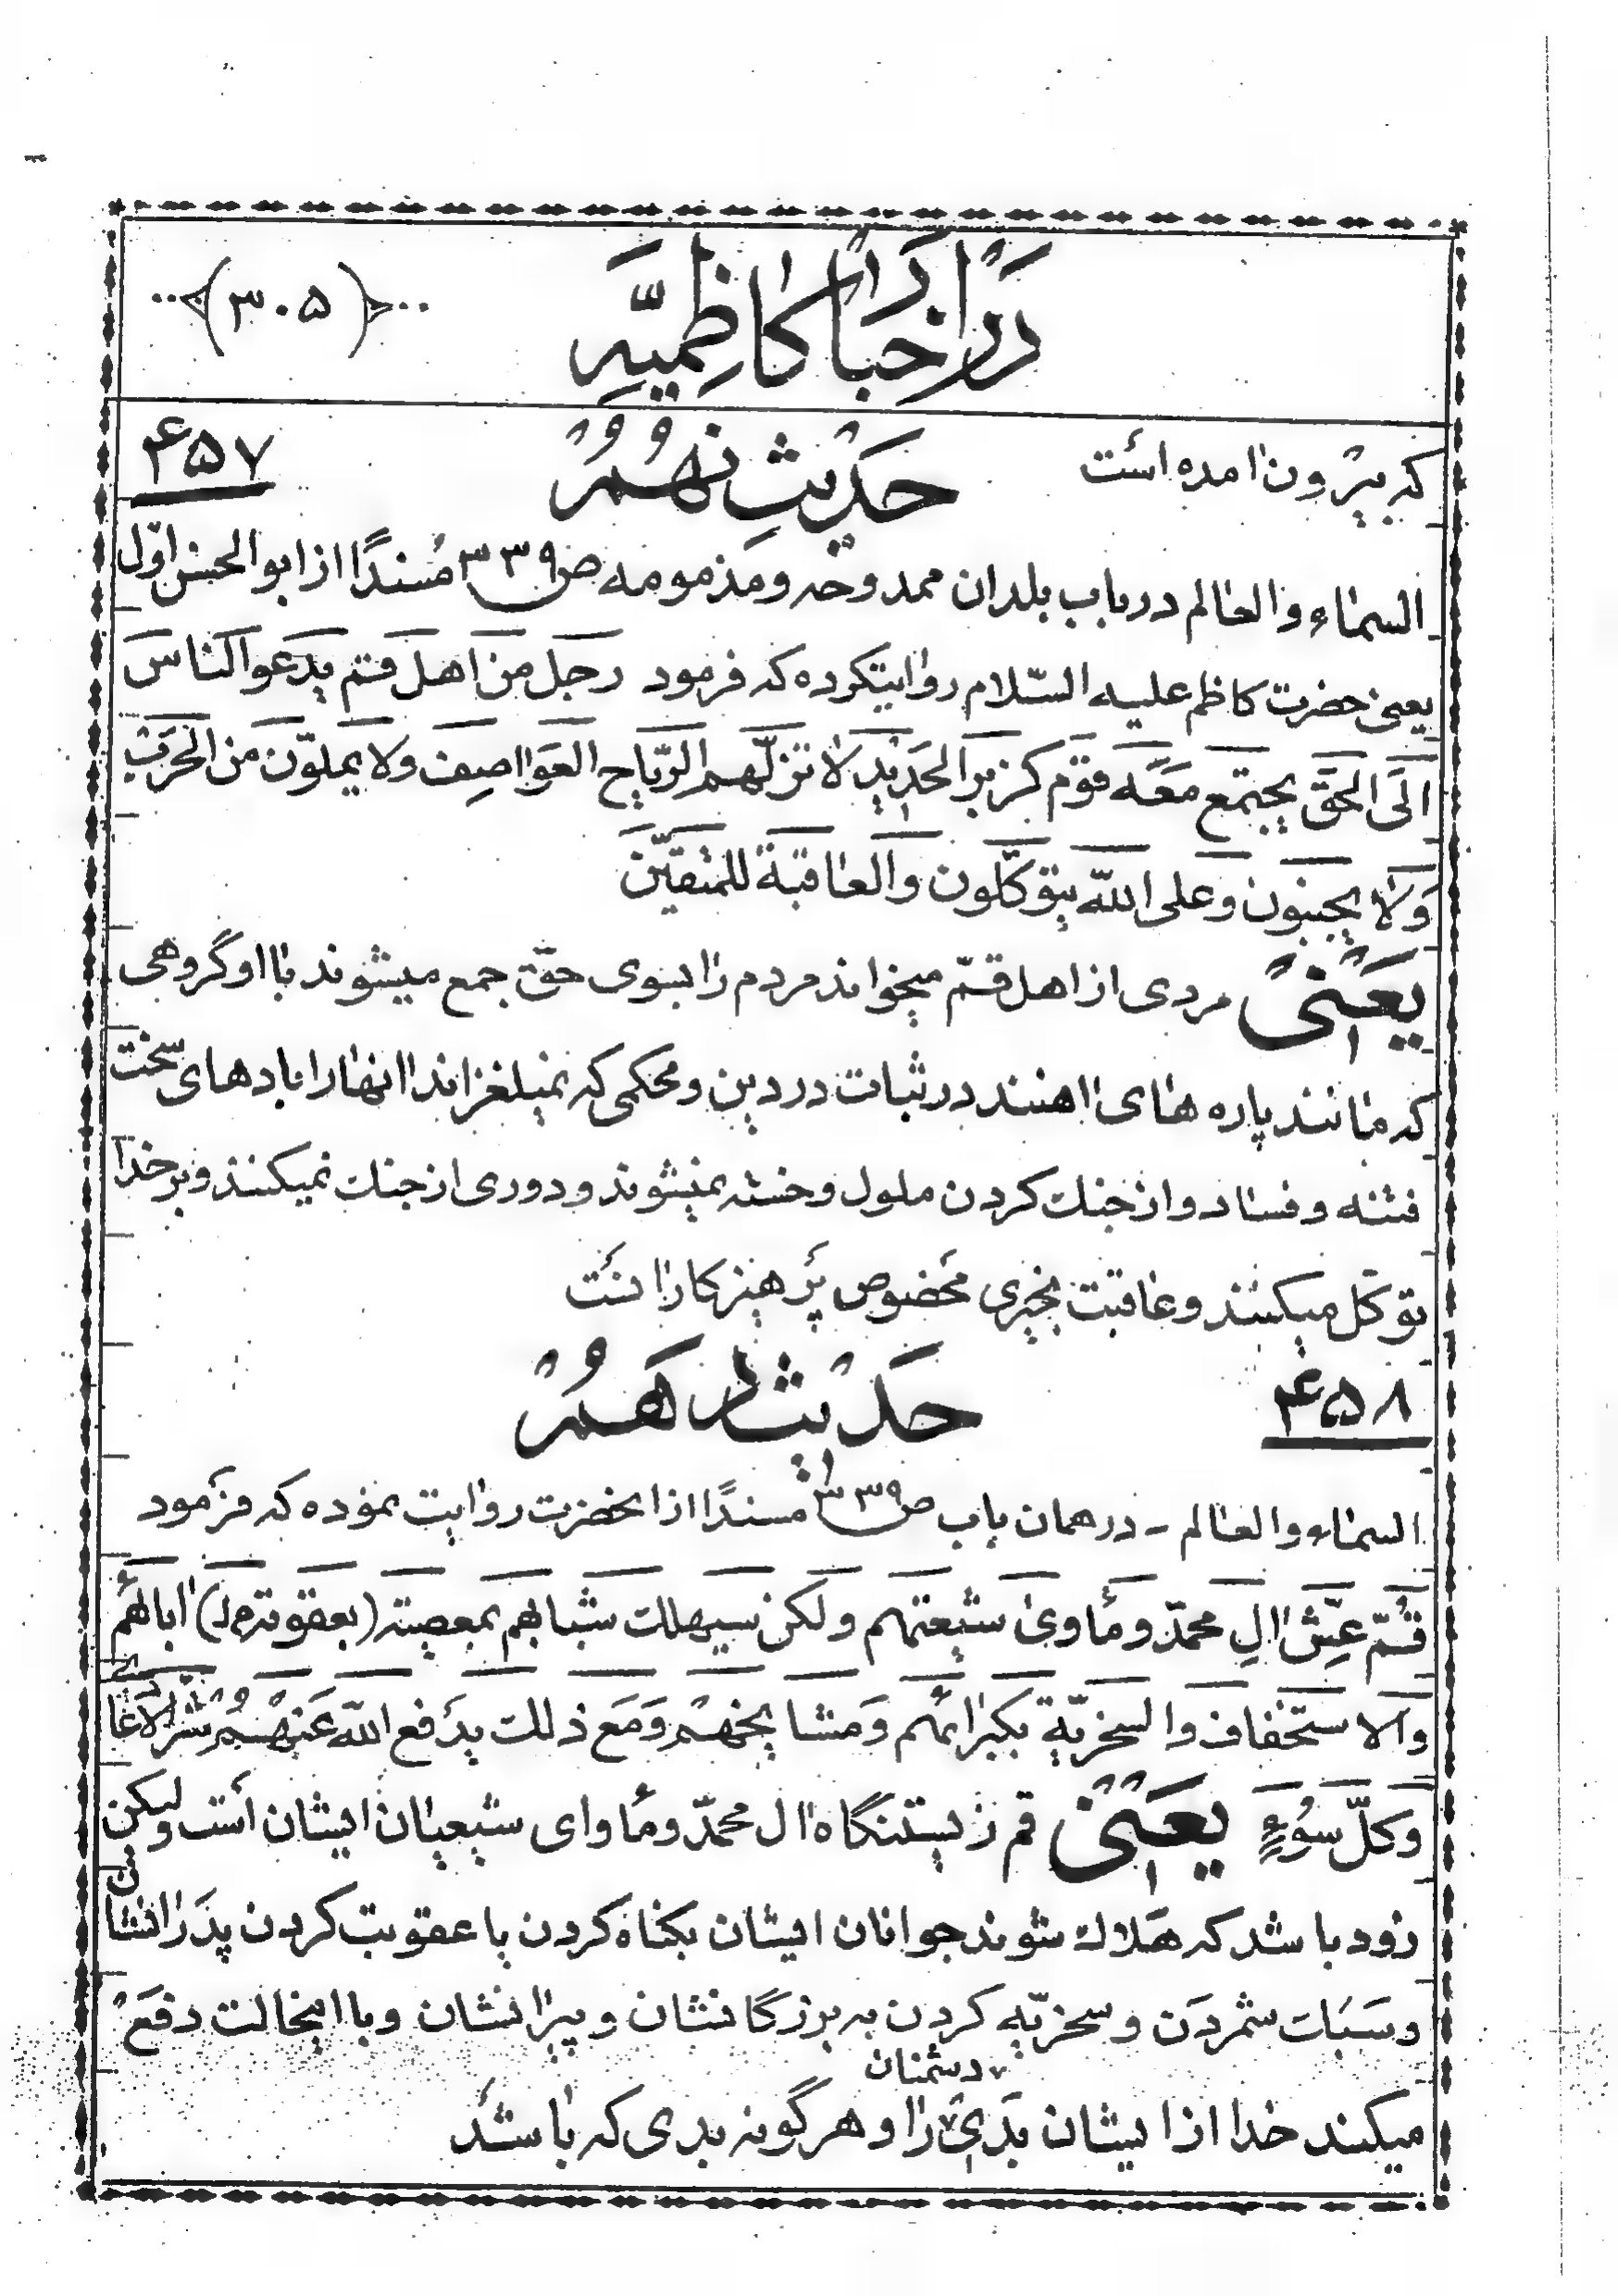 در اخبار کاظمیّه
(۳۰۵)
که بیرون امده است
حدیث نهم
۴۵۷
السماء والعالم در باب بلدان ممدوحه و مذمومه ص۳۳۹ مُسندًا از ابوالحسن اوّل
یعنی حضرت کاظم علیه السّلام روایتکرده که فرمود رجل من اهل قم یدعو الناس
الی الحق یجتمع معه قوم کزبر الحدید لا تزلّهم الرّیاح العواصف ولا یملّون من الحرب
ولا یجبنون وعلی الله یتوکّلون والعاقبة للمتقین
یعنی مردی از اهل قمّ میخواند مردم را بسوی حقّ جمع میشوند با او گروهی
که مانند پاره های اهنند در ثبات در دین و محکمی که نمیلغزاند انها را بادهای سخت
فتنه و فساد و از جنك کردن ملول و خسته نمیشوند و دوری از جنك نمیکنند و بر خدا
توکّل میکنند و عاقبت بخیری مخصوص پرهیزکارانست
حدیث دهم
۴۵۸
السماء والعالم - در همان باب ص۳۳۹ مسندًا از انحضرت روایت نموده که فرمود
قمّ عشّ ال محمّد و مأوی شیعتهم ولکن سیهلك شبابهم بمعصیته (بعقوته‌م‌ل) ابائهم
والاستخفاف والسخریّة بکبرائهم ومشایخهم ومع ذلك یدفع الله عنهم شر الاعادی
وکلّ سوء یعنی قم زیستنگاه ال محمّد و مأوای شیعیان ایشان است ولیکن
زود باشد که هلاك شوند جوانان ایشان بکناه کردن یا عقوبت کردن پدرانشان
و سبات شمردن و سخریّه کردن به بزرگانشان و پیرانشان و با اینحالت دفع
دشمنان
میکند خدا از ایشان بدی را و هرگونه بدی که باشد